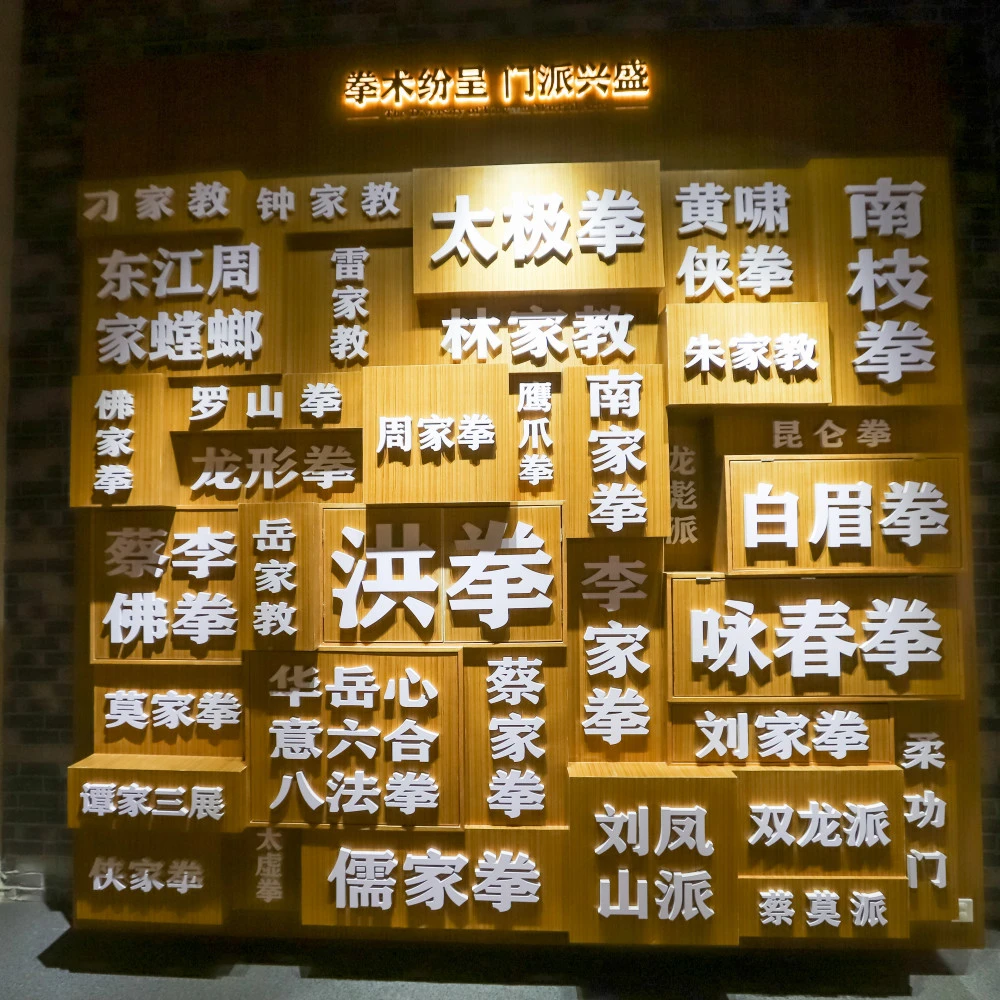 拳术纷呈 门派兴盛
刁家教
钟家教
太极拳
黄啸
侠拳
南枝拳
东江周
家螳螂
雷家教
林家教
朱家教
佛家拳
罗山拳
龙形拳
周家拳
鹰爪拳
南家拳
龙彪派
昆仑拳
白眉拳
蔡李
佛拳
岳家教
洪拳
李家拳
咏春拳
莫家拳
华岳心
意六合
八法拳
蔡家拳
刘家拳
柔功门
谭家三展
侠家拳
太虚拳
儒家拳
刘凤
山派
双龙派
蔡莫派